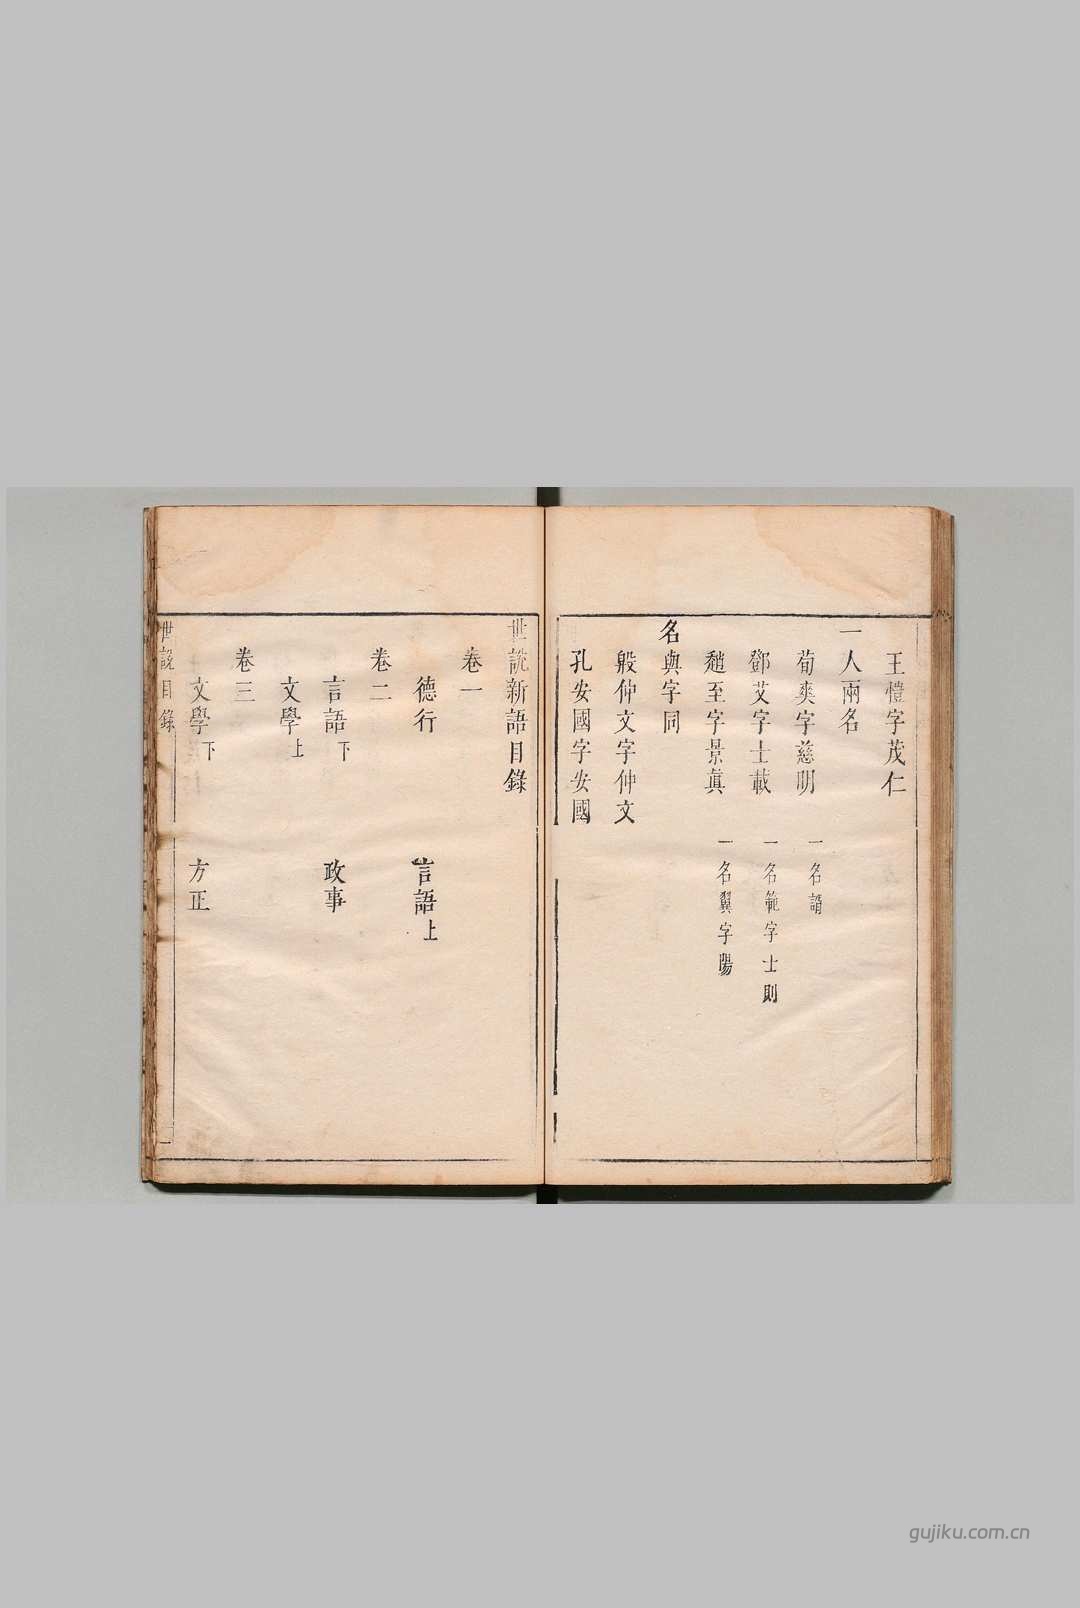 王愷字茂仁
一人兩名
荀爽字慈明 一名諝
鄧艾字士載 一名範字士則
趙至字景眞 一名翼字陽
名與字同
殷仲文字仲文
孔安國字安國
世說新語目錄
卷一
德行 言語上
卷二
言語下 政事
文學上
卷三
文學下 方正
世說目錄 一
gujiku.com.cn